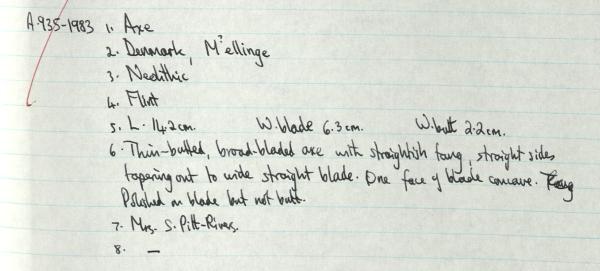 A.935-1983 1. Axe
2. Denmark, M?ellinge
3. Neolithic
4. Flint
5. L. 14.2cm. W. blade 6.3cm. W. butt 2.2cm.
6. Thin-butted, broad-bladed axe with straightish, straight sides
tapering out to wide straight blade. One face of blade concave.
Polished on blade but not butt.
7. Mrs. S. Pitt-Rivers.
8. —